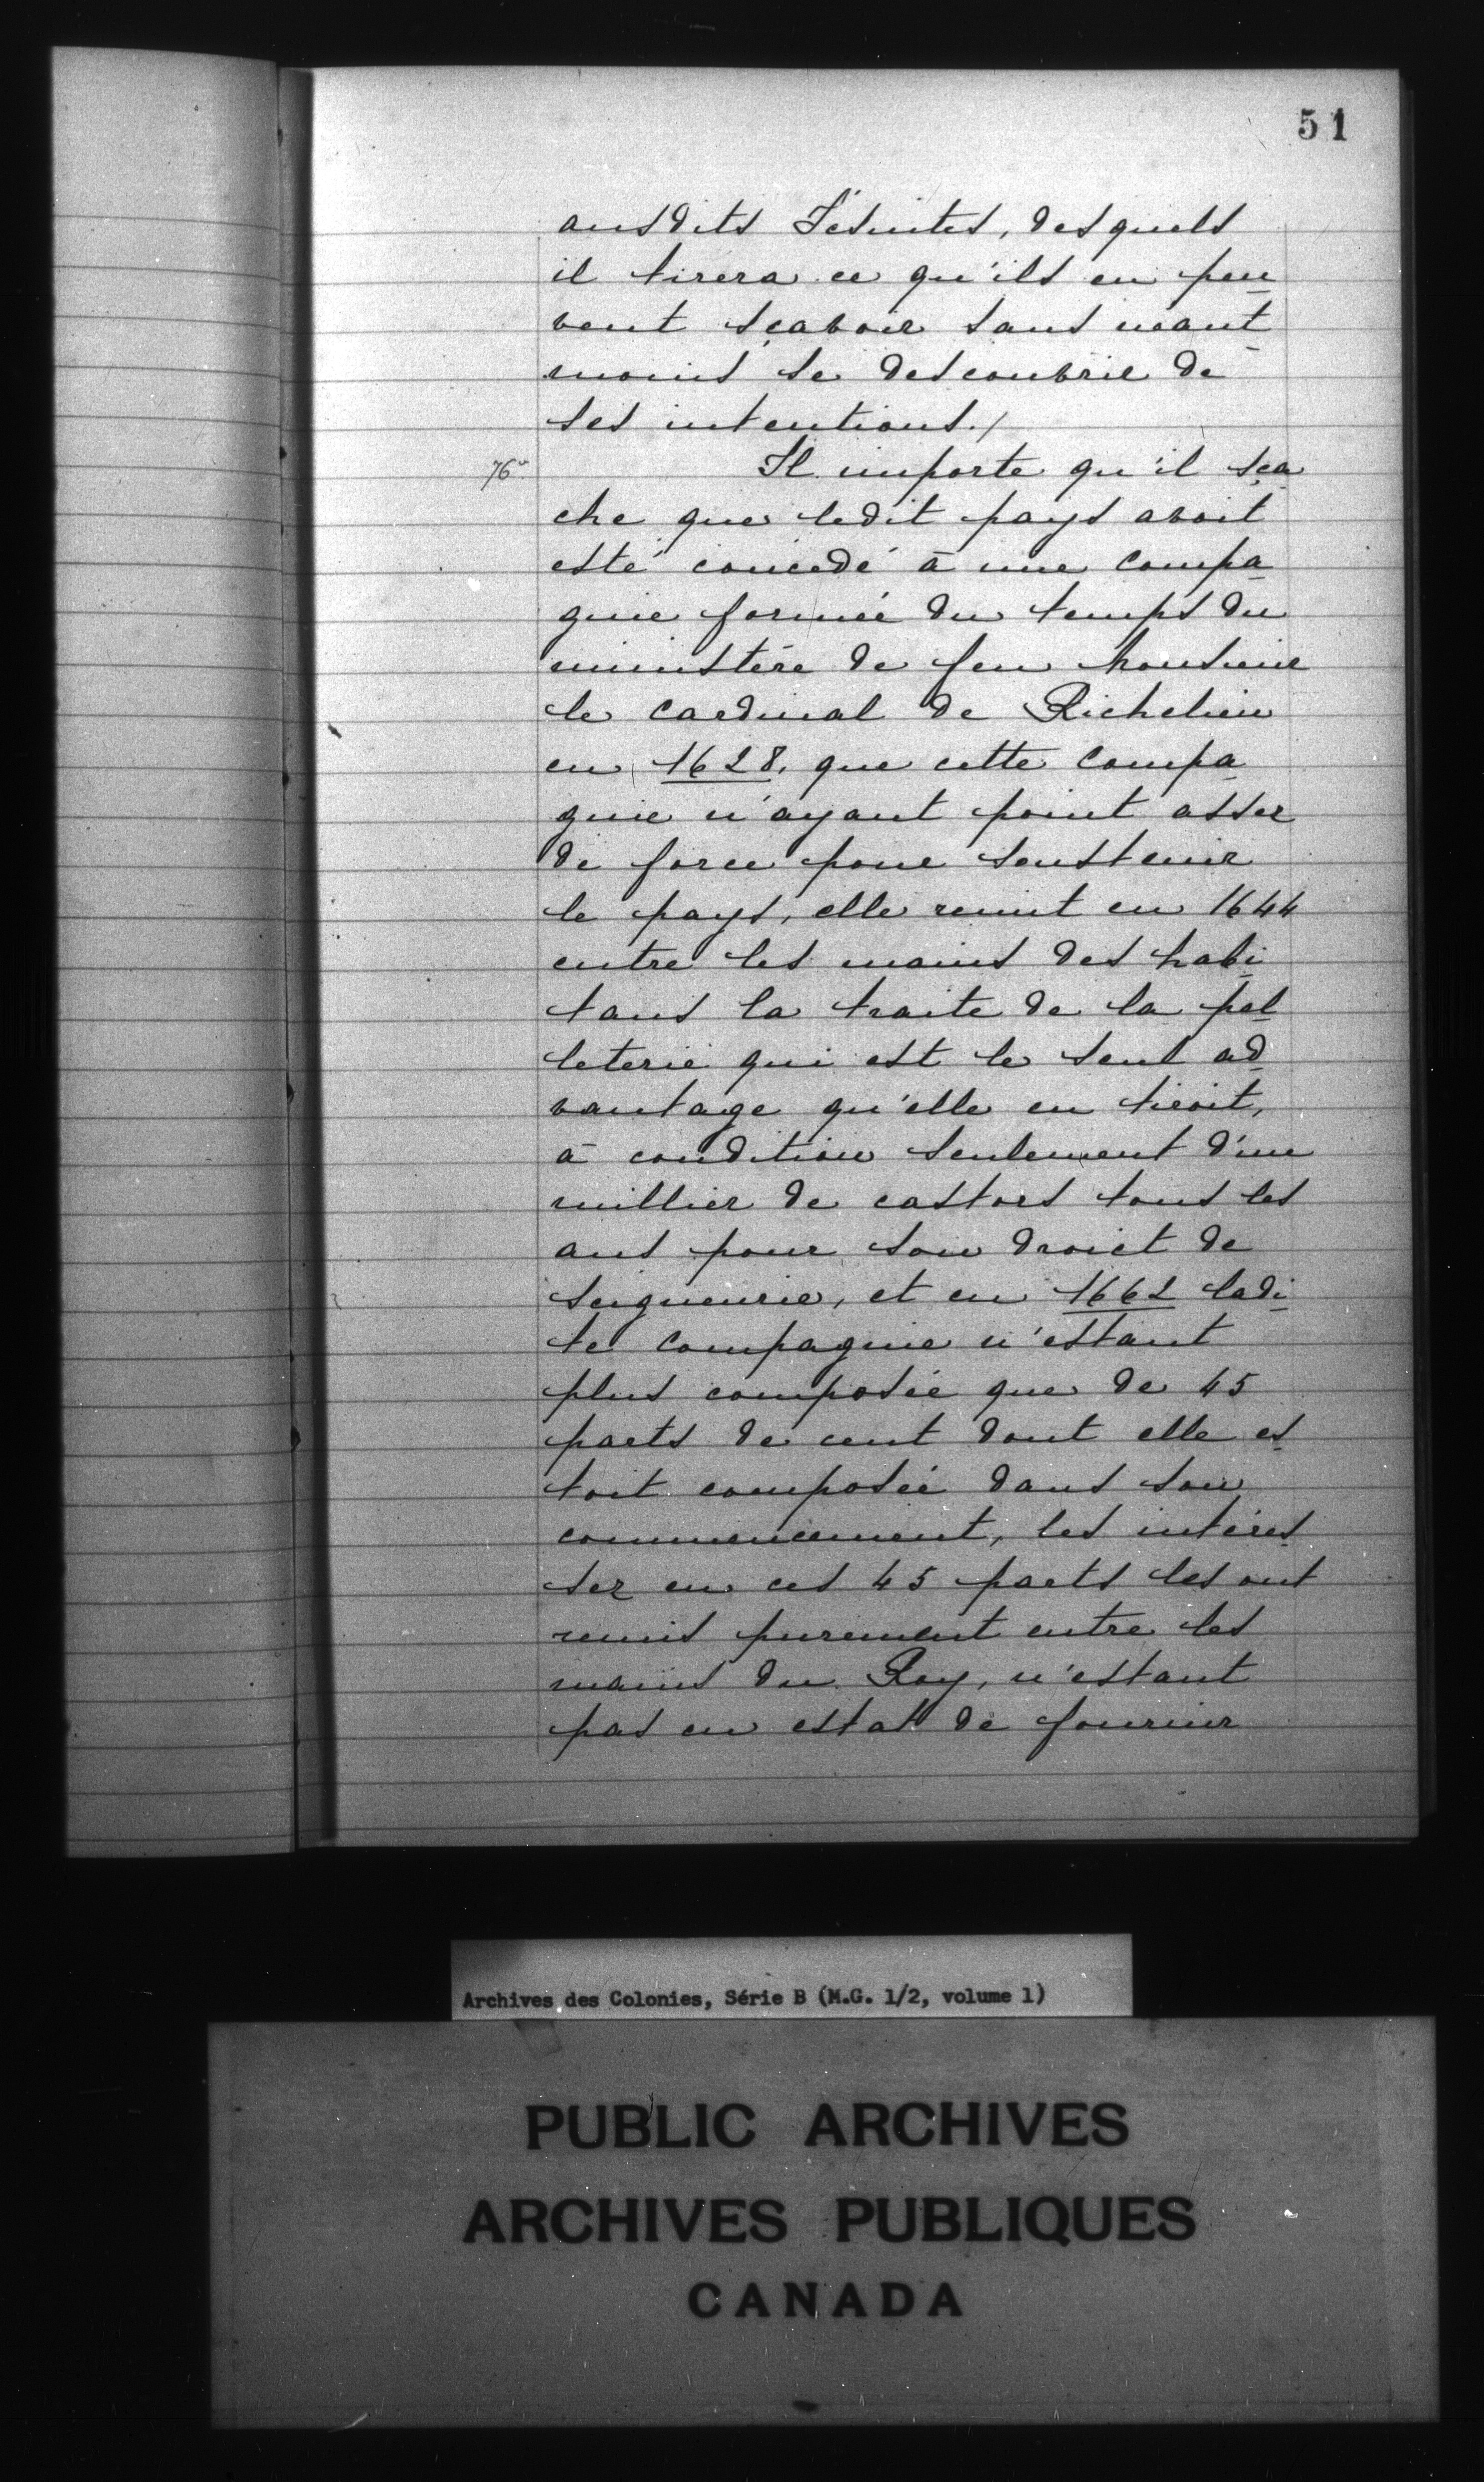 51
ausdits Jésuites, desquels
il tirera ce qu'ils en peu
vent sçavoir sans néant
moins se descouvrir de
ses intentions./
76v. Il importe qu'il sça
che que ledit pays avoit
esté concédé à une compa
gnie formée du temps du
ministère de feu Monsieur
le cardinal de Richelieu
en 1628, que cette compa
gnie n'ayant point assez
de force pour soustenir
le pays, elle remit en 1644
entre les mains des habi
tans la traite de la pel
leterie qui est le seul ad
vantage qu'elle en tiroit,
à condition seulement d'un
millier de castors tous les
ans pour son droict de
seigneurie, et en 1662 ladi
te compagnie n'estant
plus composée que de 45
parts de cent dont elle es
toit composée dans son
commencement, les intéres
sez en ces 45 parts les ont
remis purement entre les
mains du Roy, n'estant
pas en estat de fournir
Archives des Colonies, Série B (M.G. 1/2, volume 1)
PUBLIC ARCHIVES
ARCHIVES PUBLIQUES
CANADA